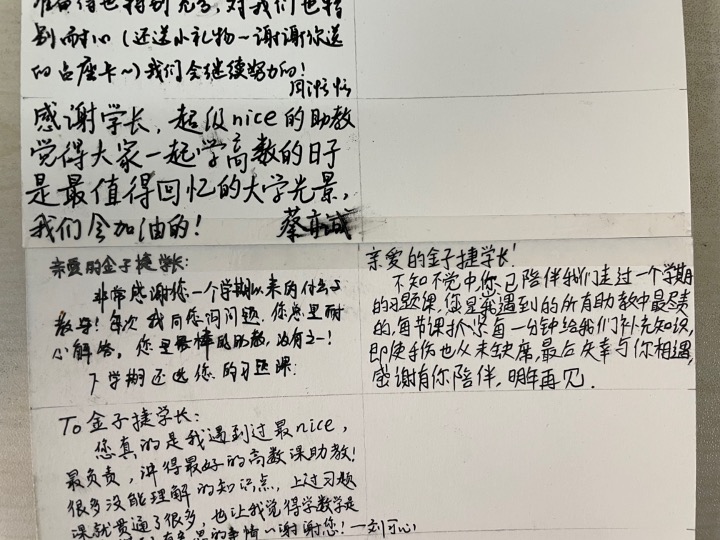 准备得也特别充分,对我们也特
别耐心(还送小礼物~谢谢你送
的占座卡~)我们会继续努力的!
感谢学长,超级nice的助教
觉得大家一起学高数的日子
是最值得回忆的大学光景,
我们会加油的!
蔡亦诚
亲爱的金子捷学长:
非常感谢您一个学期以来的付出与
教导!每次我向您问问题,您总是耐
心解答。您是最棒的助教,没有之一!
下学期还选您的习题课!
亲爱的金子捷学长!
不知不觉中你已陪伴我们走过一个学期
的习题课,您是我遇到的所有助教中最尽责
的,每节课抓紧每一分钟给我们补充知识,
即使手伤也从未缺席,最后庆幸与你相遇,
感谢有你陪伴,明年再见.
To 金子捷学长:
您真的是我遇到过最nice,
最负责,讲得最好的高数课助教!
很多没能理解的知识点,上过习题
课就贯通了很多,也让我觉得学数学是
的事情~谢谢您!—刘可心